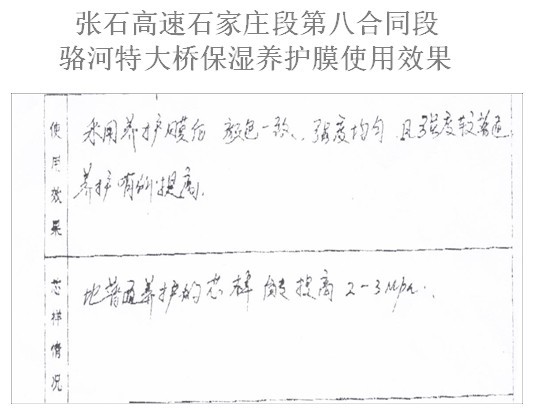 张石高速石家庄段第八合同段
骆河特大桥保湿养护膜使用效果
使用效果
采用养护膜后 颜色一致、强度均匀 且强度较普通
养护有所提高.
芯样情况
比普通养护的芯样 强度提高 2-3Mpa.